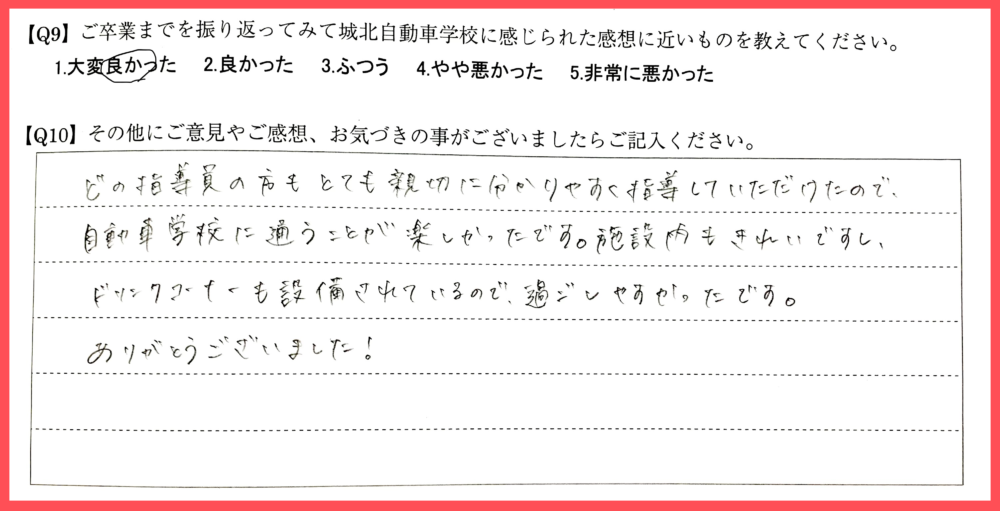 【Q9】ご卒業までを振り返ってみて城北自動車学校に感じられた感想に近いものを教えてください。
1.大変良かった 2.良かった 3.ふつう 4.やや悪かった 5.非常に悪かった
【Q10】その他にご意見やご感想、お気づきの事がございましたらご記入ください。
どの指導員の方もとても親切に分かりやすく指導していただけたので、
自動車学校に通うことが楽しかったです。施設内もきれいですし、
ドリンクコーナーも設備されているので、過ごしやすかったです。
ありがとうございました!